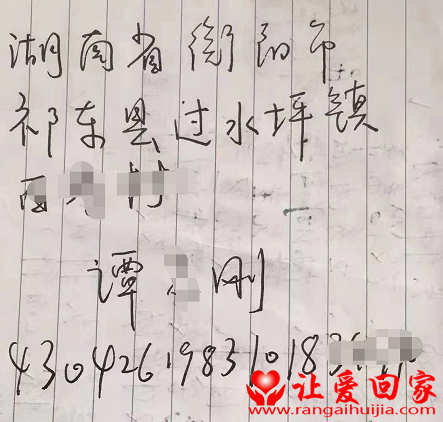 湖南省衡阳市
祁东县过水坪镇
村
谭 刚
43042619831018
让爱回家
www.rangaihuijia.com